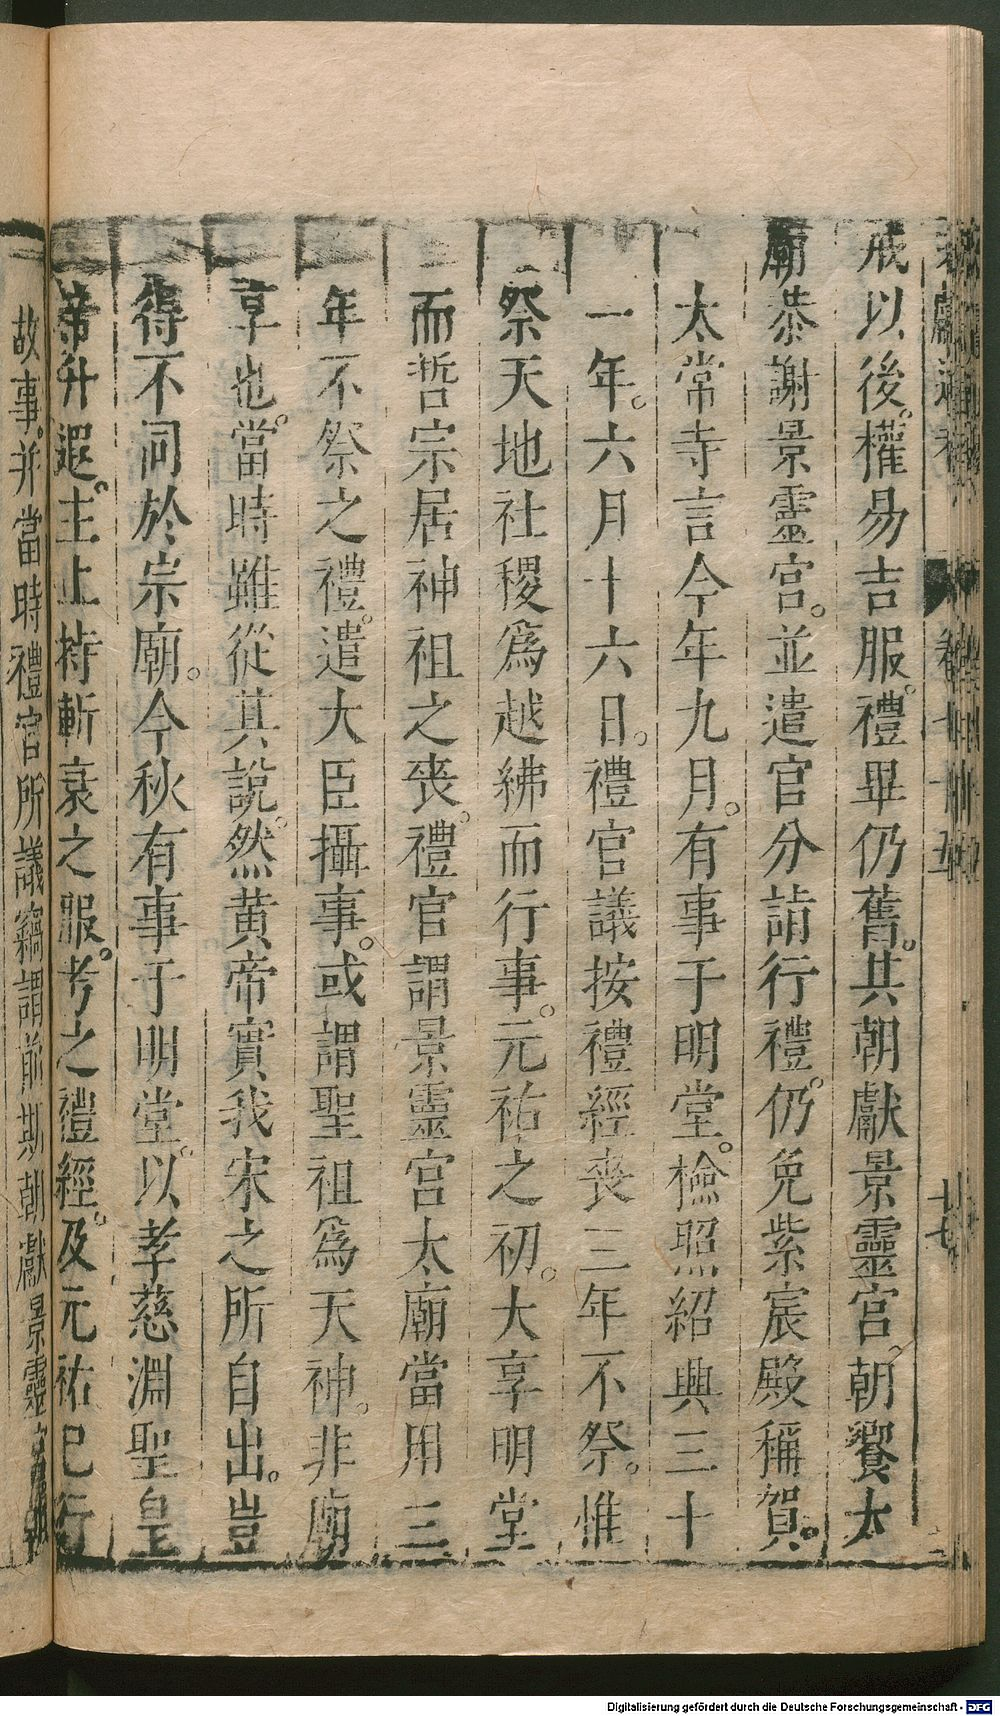 文獻通考 卷七十五 廿七
戒以後。權易吉服。禮畢仍舊。其朝獻景靈宮。朝饗太
廟。恭謝景靈宮。並遣官分詣行禮。仍免紫宸殿稱賀。
太常寺言今年九月。有事于明堂。檢照紹興三十
一年。六月十六日。禮官議按禮經喪三年不祭。惟
祭天地社稷爲越紼而行事。元祐之初。大享明堂
而哲宗居神祖之喪。禮官謂景靈宮太廟當用三
年不祭之禮。遣大臣攝事。或謂聖祖爲天神。非廟
享也。當時雖從其說。然黄帝實我宋之所自出。豈
得不同於宗廟。今秋有事于明堂。以孝慈淵聖皇
帝升遐。主上持斬衰之服。考之禮經。及元祐已行
故事。并當時禮官所議竊謂前期朝獻景靈
Digitalisierung gefördert durch die Deutsche Forschungsgemeinschaft - DFG